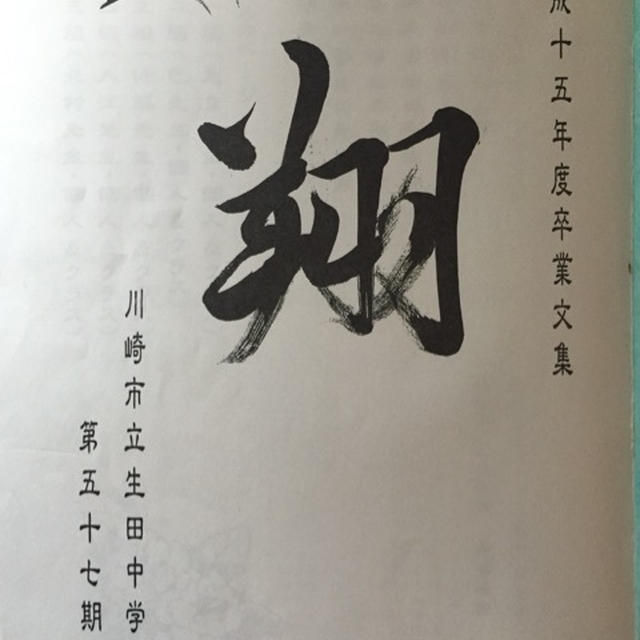 成十五年度卒業文集
翔
川崎市立生田中学
第五十七期